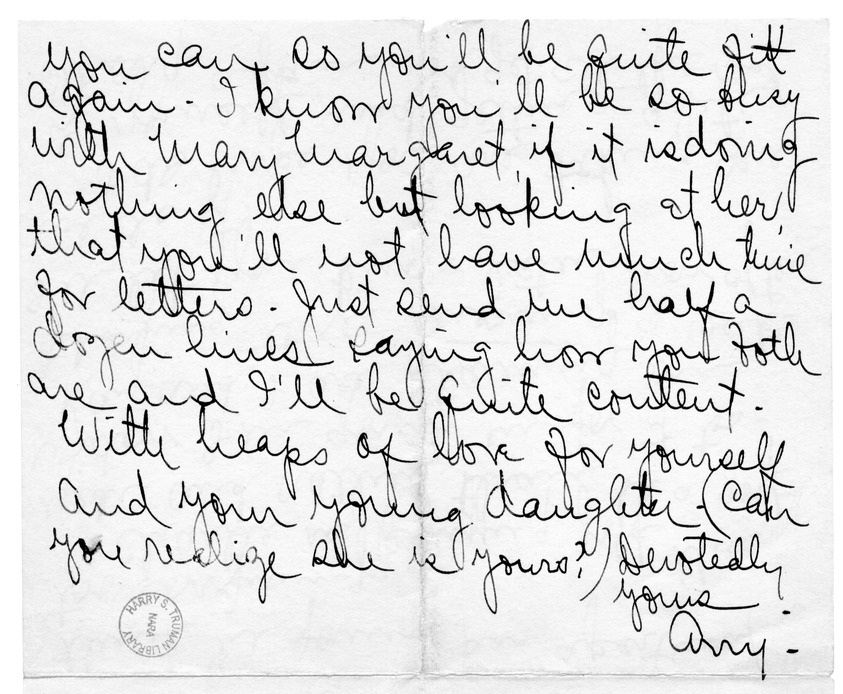 you can, so you'll be quite fitt
again - I know you'll be so busy
with Mary Margaret, if it is doing
nothing else but looking at her,
that you'll not have much time
for letters. Just send me half a
dozen lines saying how you both
are and I'll be quite content.
With heaps of love for yourself
and your young daughter - (can
you realize she is yours?) Devotedly
yours
Arry -
HARRY S. TRUMAN LIBRARY
NARA